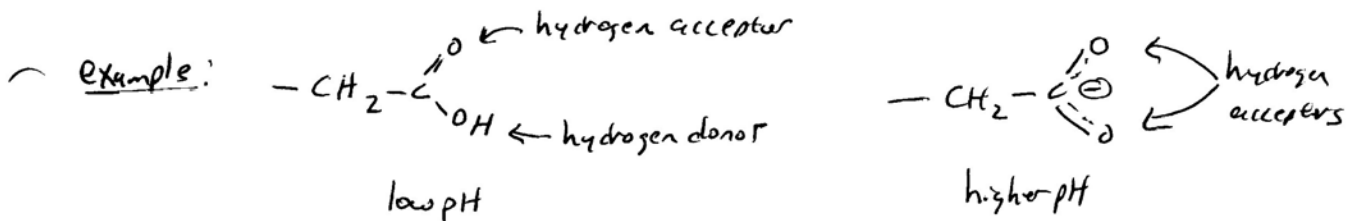 example:
- CH2 - C
O ← hydrogen acceptor
OH ← hydrogen donor
low pH
- CH2 - C ⊖
O
O
hydrogen
acceptors
higher pH